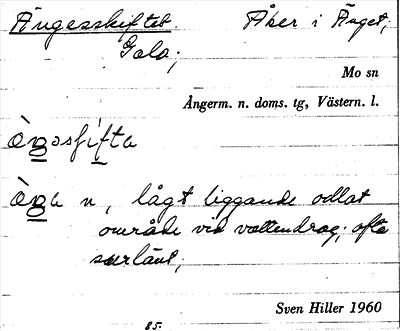 Ängesskiftet Åker i Änget;
Gala;
Mo sn
Ångerm. n. doms. tg, Västern. l.
n, lågt liggande odlat
område vid vattendrag; ofta
Sven Hiller 1960
85.